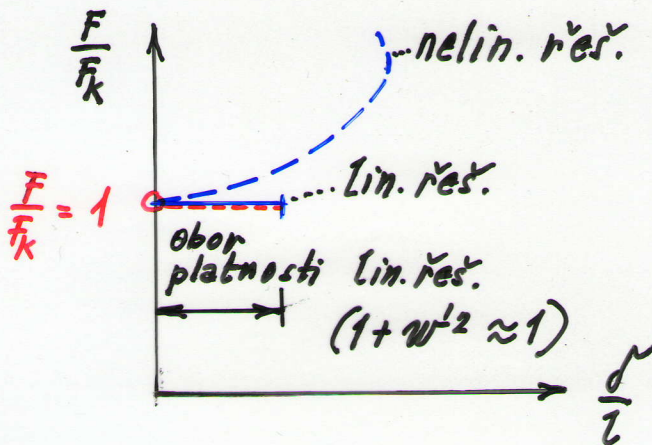 F/F_k
nelin. řeš.
F/F_k = 1
lin. řeš.
obor
platnosti lin. řeš.
(1 + w'² ≈ 1)
δ/l